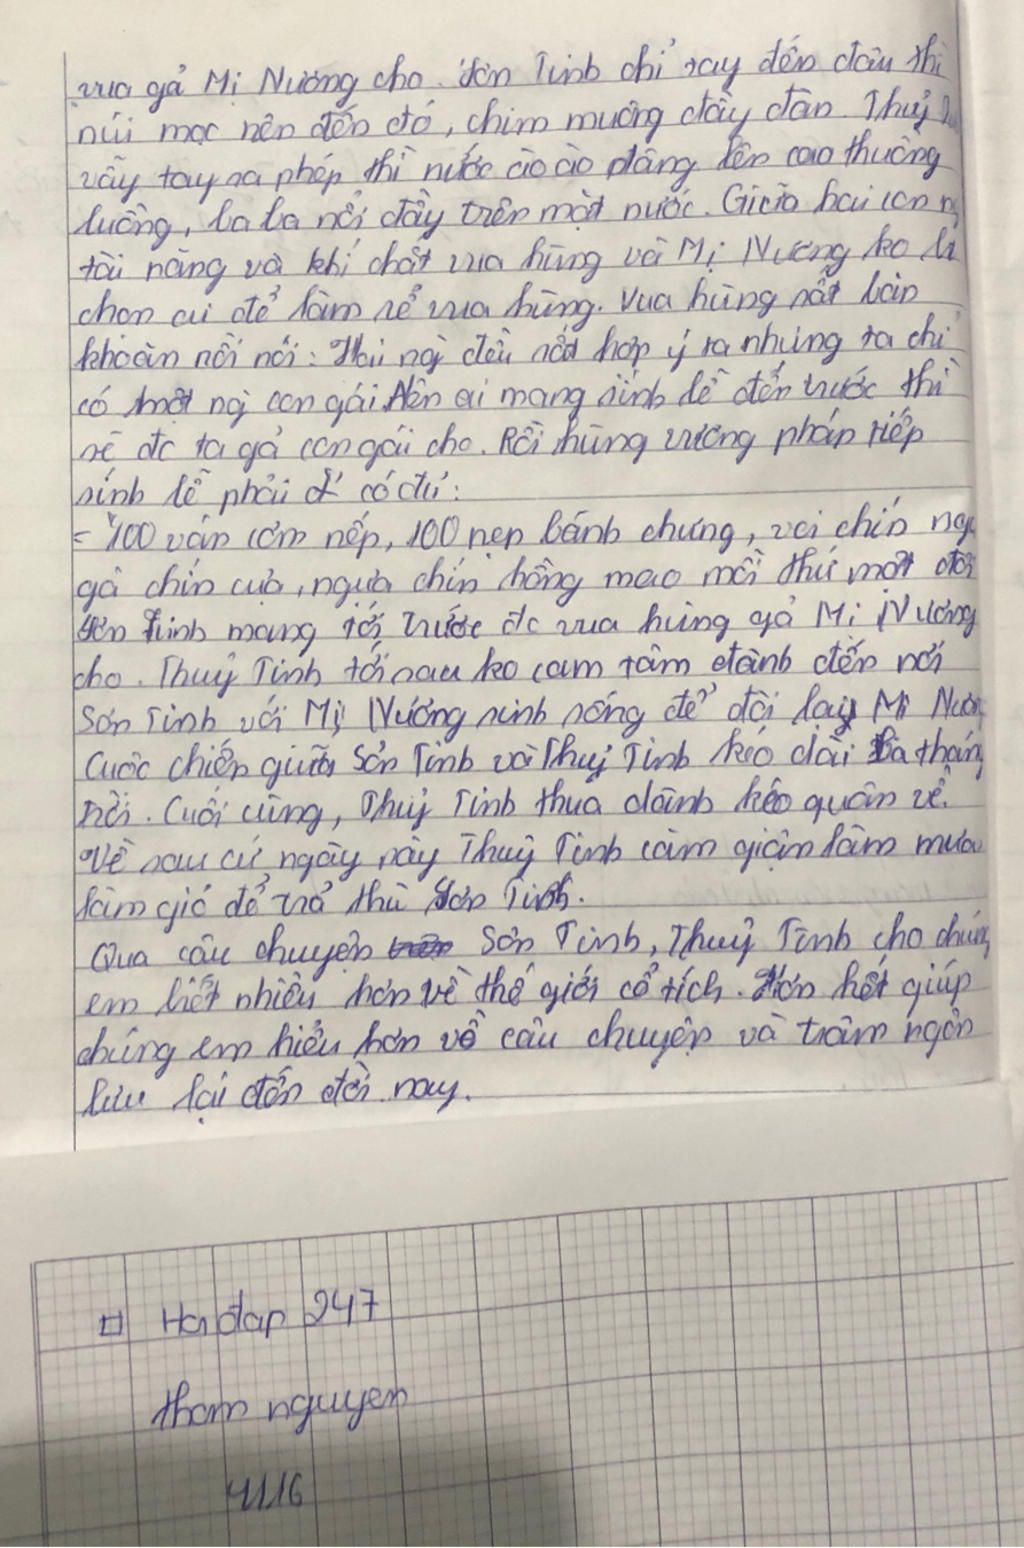 vua gả Mị Nương cho. Sơn Tinh chỉ tay đến đâu thì
núi mọc nên đến đó, chim muông đầy đàn. Thuỷ
vẫy tay ra phép thì nước ào ào dâng lên cao thuồng
luồng, ba ba nổi đầy trên mặt nước. Giữa hai con
tài năng và khí chất vua hùng và Mị Nương ko
chọn ai để làm rể vua hùng. Vua hùng rất băn
khoăn nồi nói: Hai ng` đều rất hợp ý ta nhưng ta chỉ
có một ng` con gái. Nên ai mang sính lễ đến trước thì
sẽ đc ta gả con gái cho. Rồi hùng vương phán tiếp
sính lễ phải có đủ:
- "100 ván cơm nếp, 100 nẹp bánh chưng, voi chín
gà chín cựa, ngựa chín hồng mao mỗi thứ một đôi
Sơn Tinh mang tới trước đc vua hùng gả Mị Nương
cho. Thuỷ Tinh tới sau ko cam tâm đành đến nơi
Sơn Tinh với Mị Nương sinh sống để đòi lại Mị
Cuộc chiến giữa Sơn Tinh và Thuỷ Tinh kéo dài ba
rồi. Cuối cùng, Thuỷ Tinh thua dành kéo quân về.
Về sau cứ ngày này Thuỷ Tinh căm giận làm mưa
làm gió để trả thù Sơn Tinh.
Qua câu chuyện Sơn Tinh, Thuỷ Tinh cho chúng
em biết nhiều hơn về thế giới cổ tích. Hơn hết giúp
chúng em hiểu hơn về câu chuyện và trâm ngôn
lưu lại đến đời nay.
Hoi đap 247
tham nguyen
4116